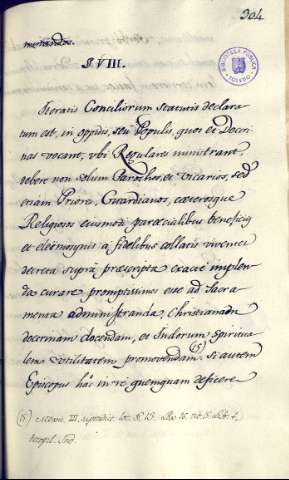 304
§. VIII.
BIBLIOTECA PUBLICA TOLEDO
Iteratis Conciliorum statutis declara
tum est, in oppidis, seu Populis, quos et Doctri
nas vocant, vbi Regulares ministrant
debere non solum Parochos, et Vicarios, sed
etiam Priores, Guardianos, cæterosque
Religiosos eiusmodi parœcialibus beneficijs
et eleemosynis a fidelibus collatis viventes
decreta supra præscripta exacte implen
da curare promptissimos esse ad Sacra
menta administranda, Christianam
doctrinam docendam, et Indorum spiritua
lem vtilitatem promovendam. (5) Si autem
Episcopus hâc in re quemquam deficere